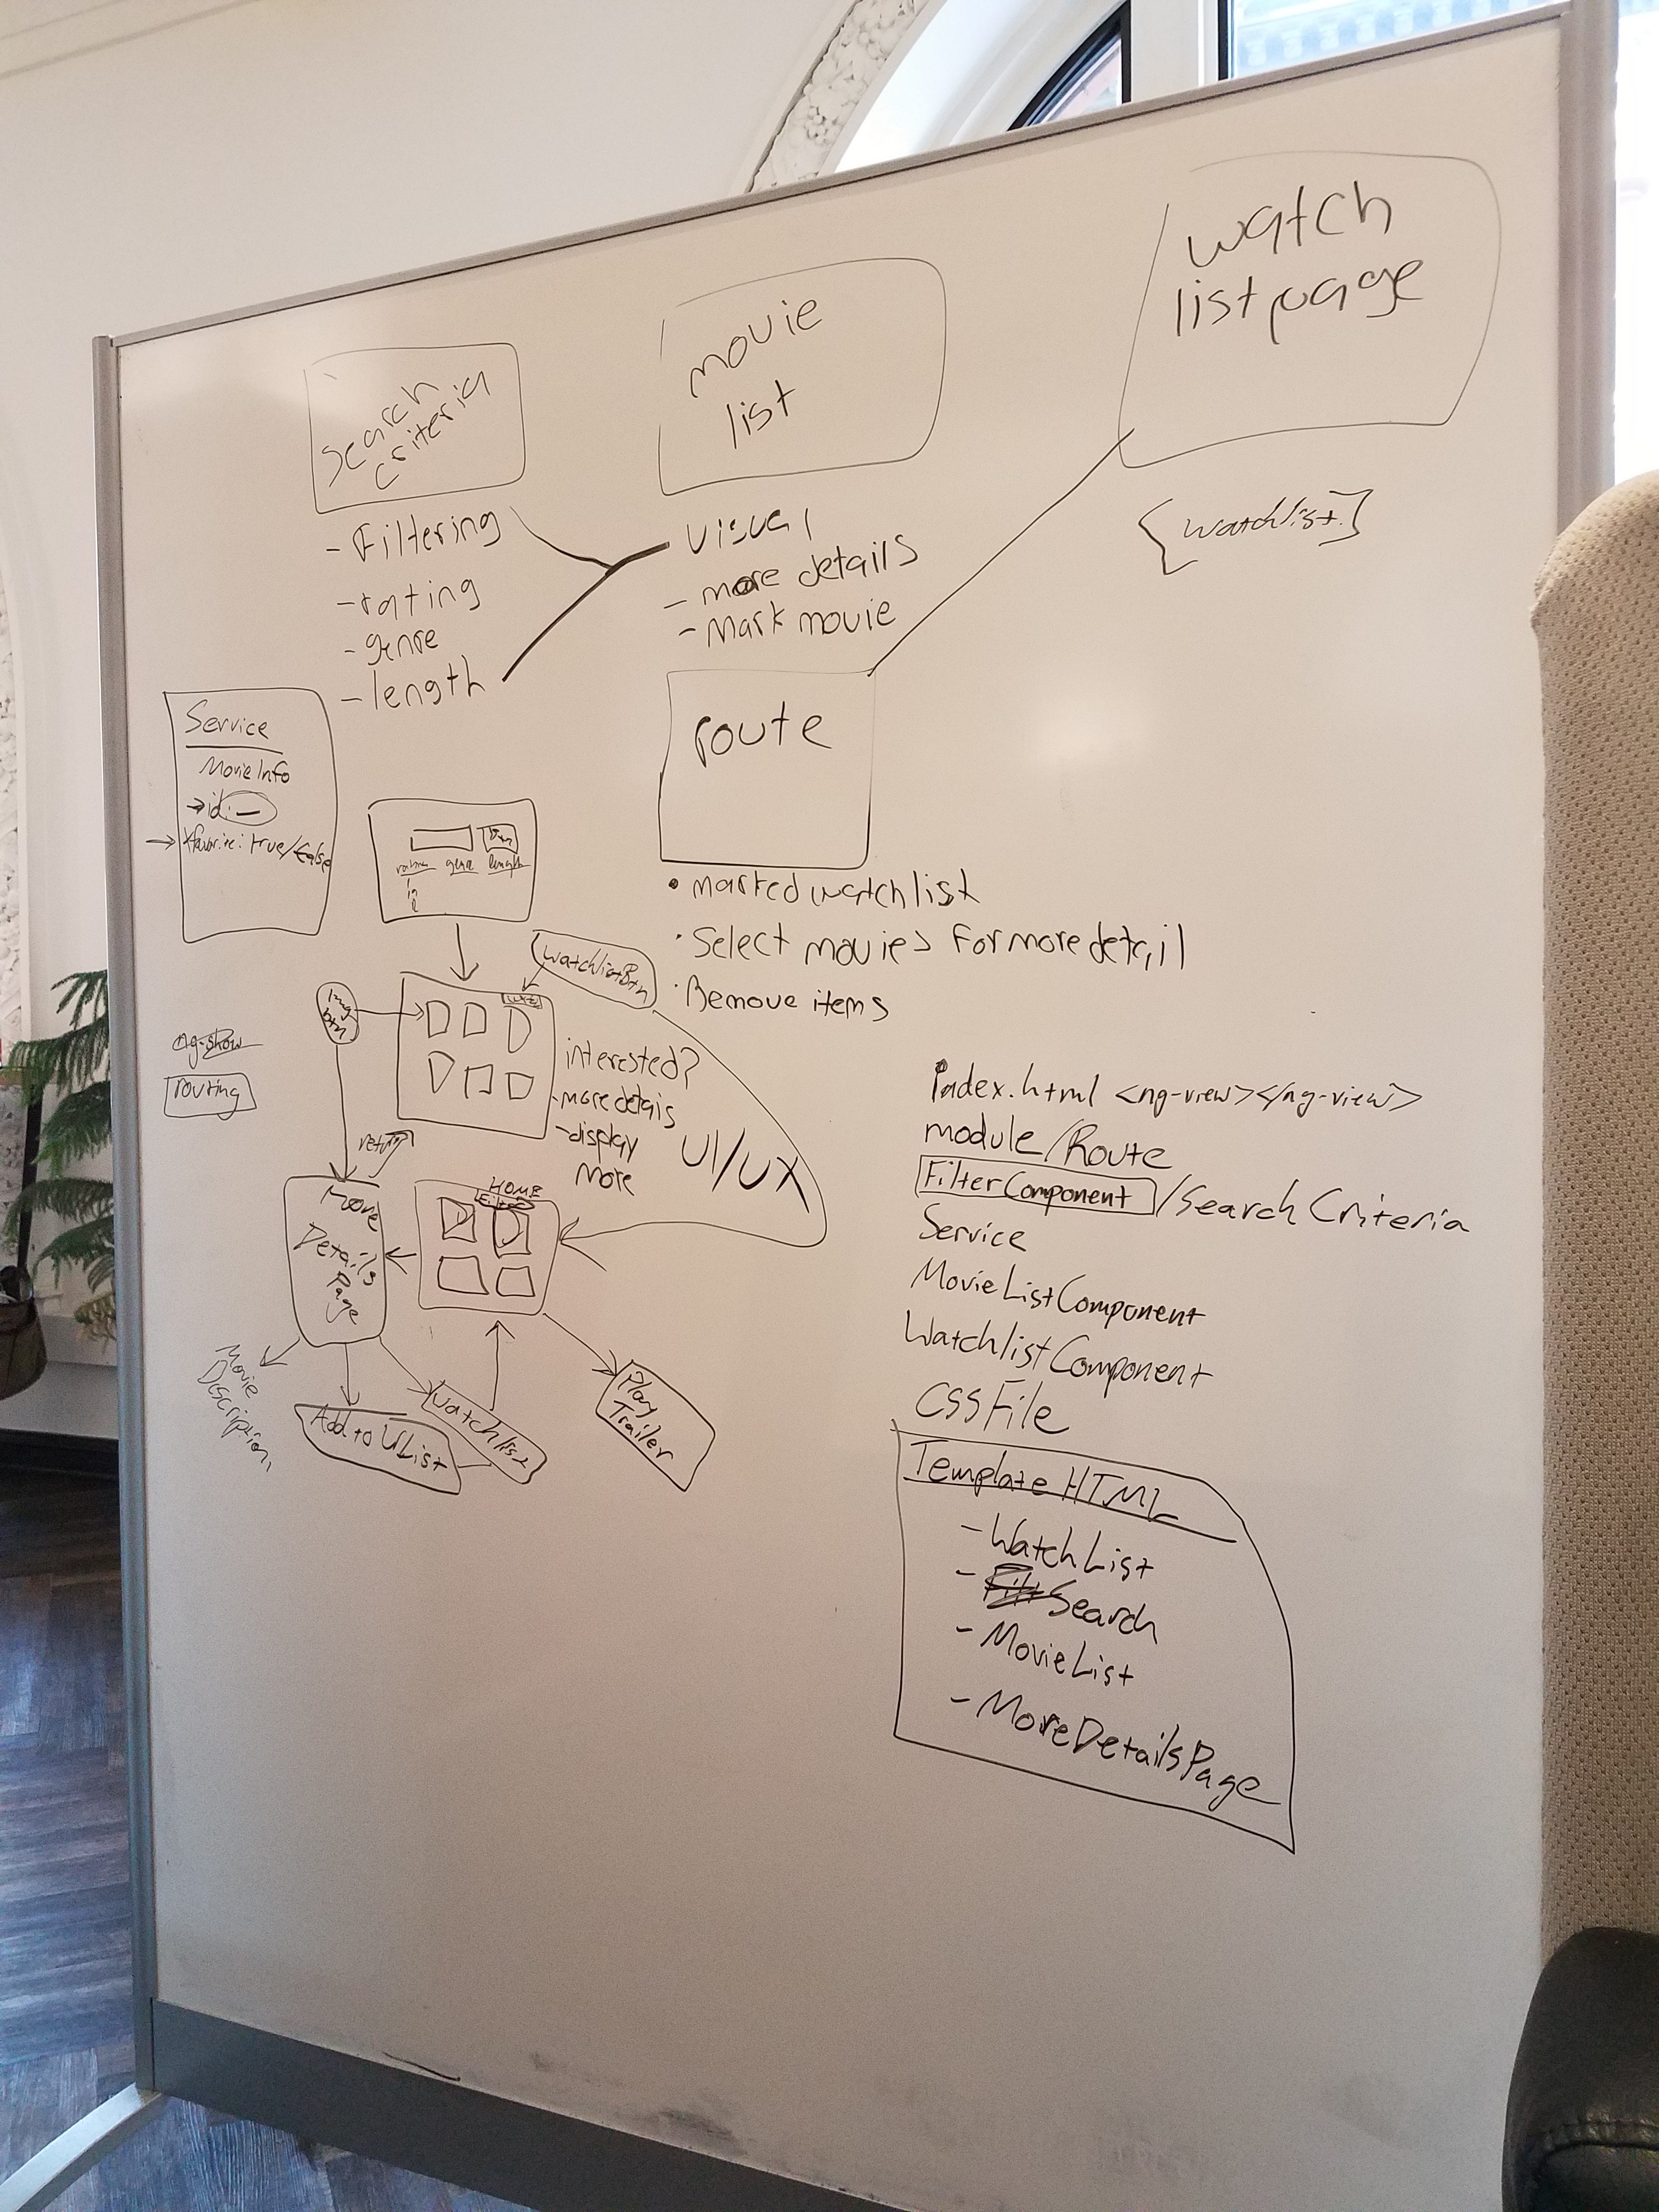 watch
list page
movie
list
Search
Criteria
[watchlist]
- Filtering
- rating
- genre
- length
Visual
- more details
- Mark movie
route
Service
MovieInfo
→ id: —
→ *favorite: true/false
genre length
• marked watch list
• Select movies for more detail
• Remove items
WatchlistBtn
img
btn
ng-show
routing
interested?
- more detais
- display
more
UI/UX
return
HOME
More
Details
Page
Movie
Description
Add to WList
Watchlist
Play
Trailer
Index.html <ng-view></ng-view>
module/Route
FilterComponent/Search Criteria
Service
MovieListComponent
WatchlistComponent
CSS File
Template HTML
- WatchList
- Search
- MovieList
- MoreDetailsPage